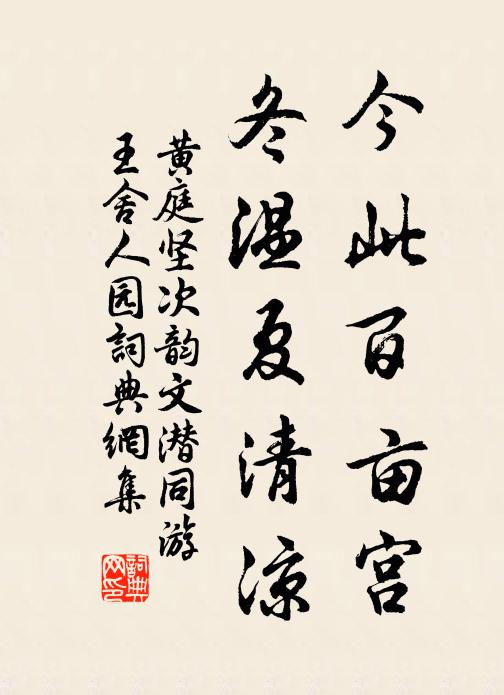 今此百亩宫
冬温夏清凉
黄庭坚次韵文潜同游
王舍人园詞典網集
詞典
网印